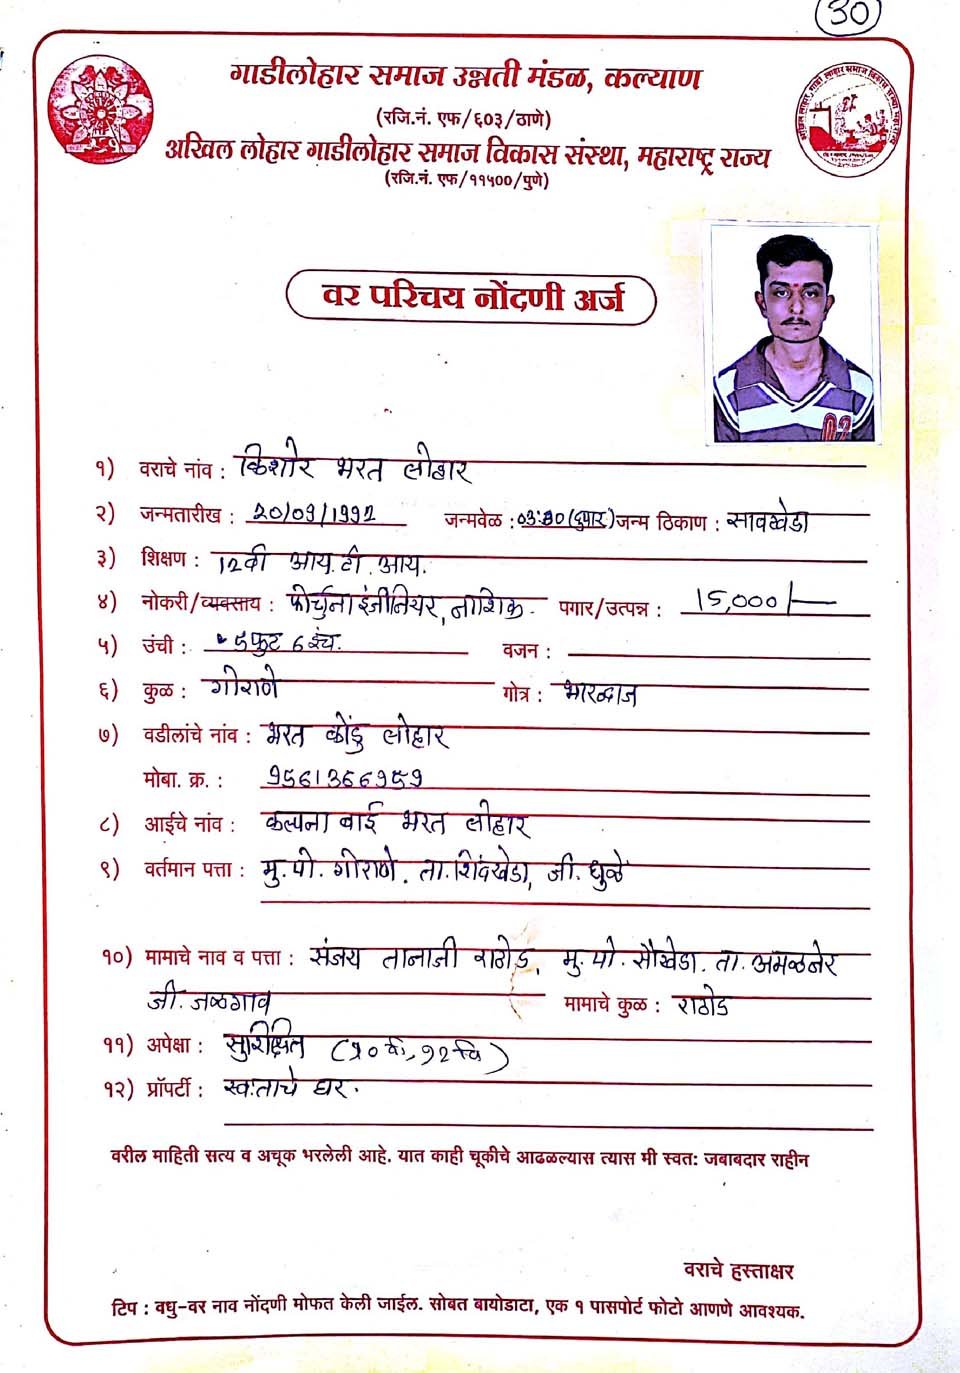 30
गाडीलोहार समाज उन्नती मंडळ, कल्याण
(रजि.नं. एफ/६०३/ठाणे)
अखिल लोहार गाडीलोहार समाज विकास संस्था, महाराष्ट्र राज्य
(रजि.नं. एफ/११५००/पुणे)
वर परिचय नोंदणी अर्ज
१) वराचे नांव : किशोर भरत लोहार
२) जन्मतारीख : 20/09/1992 जन्मवेळ : 03:30 (दुपार) जन्म ठिकाण : सावखेडा
३) शिक्षण : 12वी आय.टी.आय.
४) नोकरी/व्यवसाय : फोर्चुना इंजीनियर, नाशिक. पगार/उत्पन्न : 15,000/-
५) उंची : 5 फुट 6 इंच. वजन :
६) कुळ : गोराणे गोत्र : भारद्वाज
७) वडीलांचे नांव : भरत कोंडु लोहार
मोबा. क्र. : ९561366९5९
८) आईचे नांव : कल्पना बाई भरत लोहार
९) वर्तमान पत्ता : मु.पो. गोराणे. ता. शिंदखेडा, जी. धुळे
१०) मामाचे नाव व पत्ता : संजय तानाजी राठोड, मु. पो. सौखेडा. ता. अमळनेर
जी. जळगाव मामाचे कुळ : राठोड
११) अपेक्षा : सुशिक्षित (१० वी, १२ वि)
१२) प्रॉपर्टी : स्वःताचे घर.
वरील माहिती सत्य व अचूक भरलेली आहे. यात काही चूकीचे आढळल्यास त्यास मी स्वत: जबाबदार राहीन
वराचे हस्ताक्षर
टिप : वधु-वर नाव नोंदणी मोफत केली जाईल. सोबत बायोडाटा, एक १ पासपोर्ट फोटो आणणे आवश्यक.